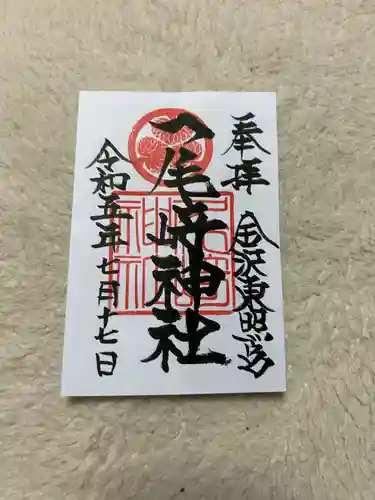 奉拝
金沢東照宮
尾崎神社
令和五年七月十七日